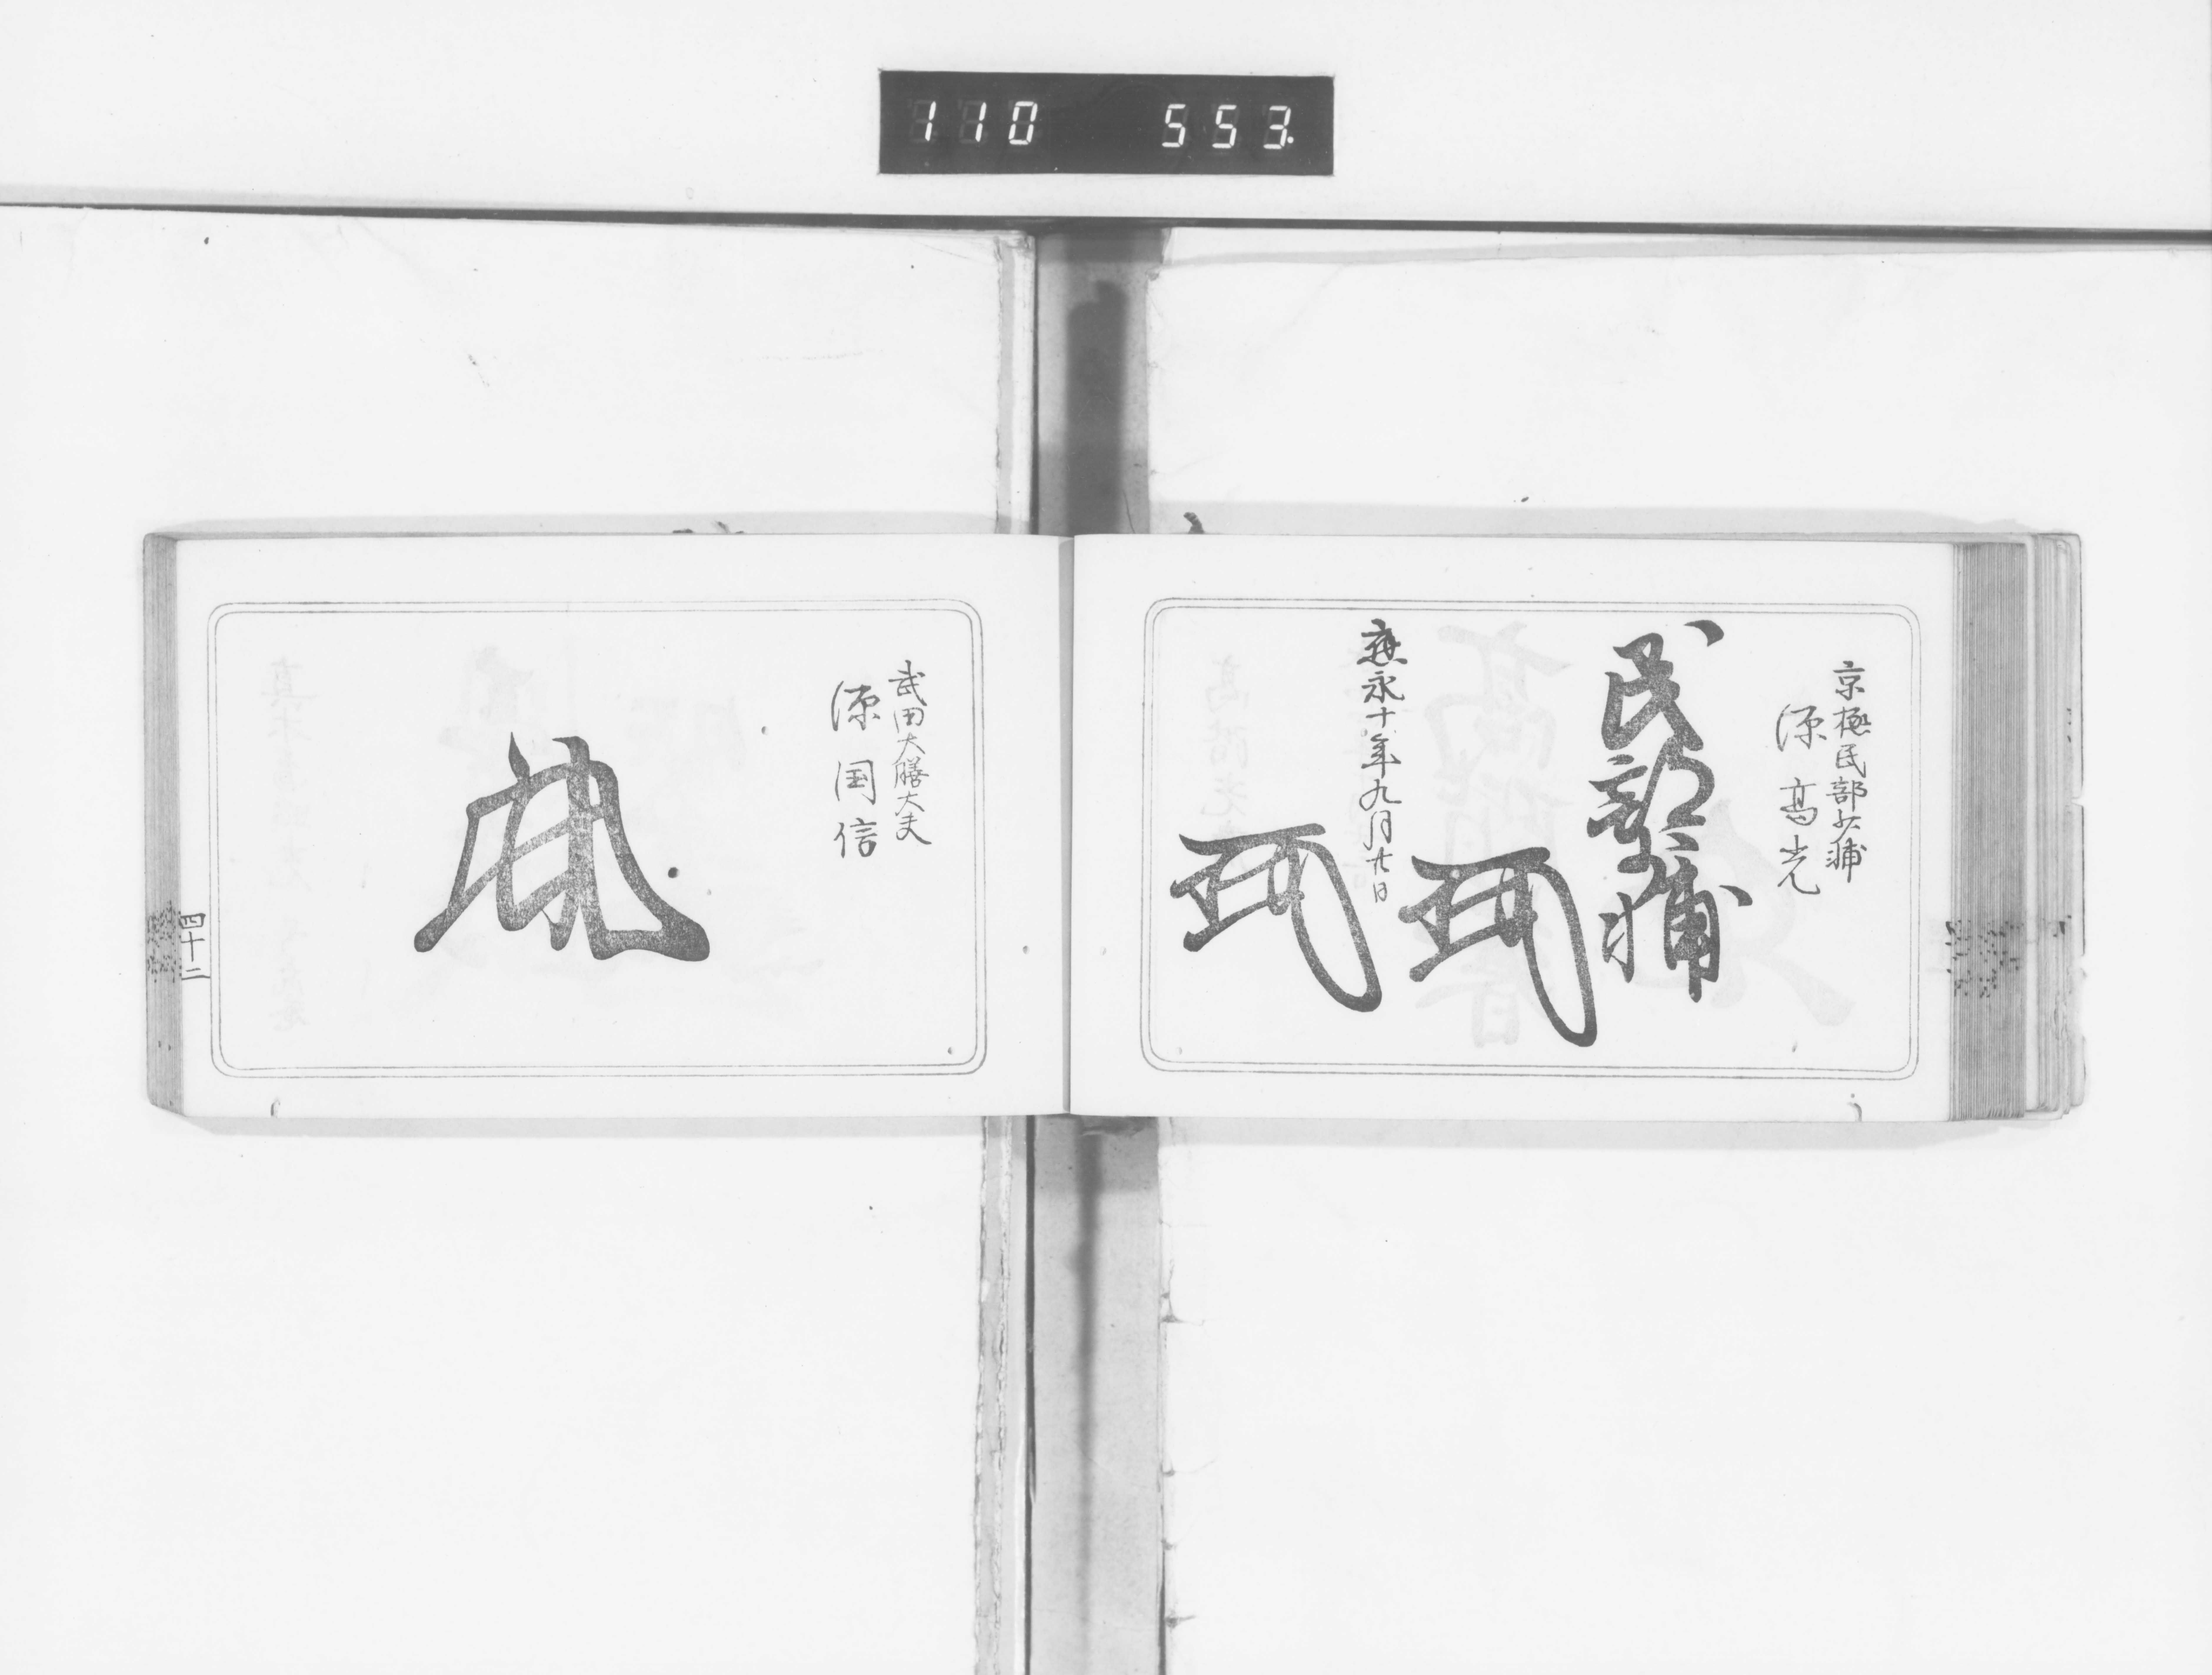 110 553
京極民部少輔
源高光
民部少輔
應永十年九月廿日
武田大膳大夫
源国信
四十二